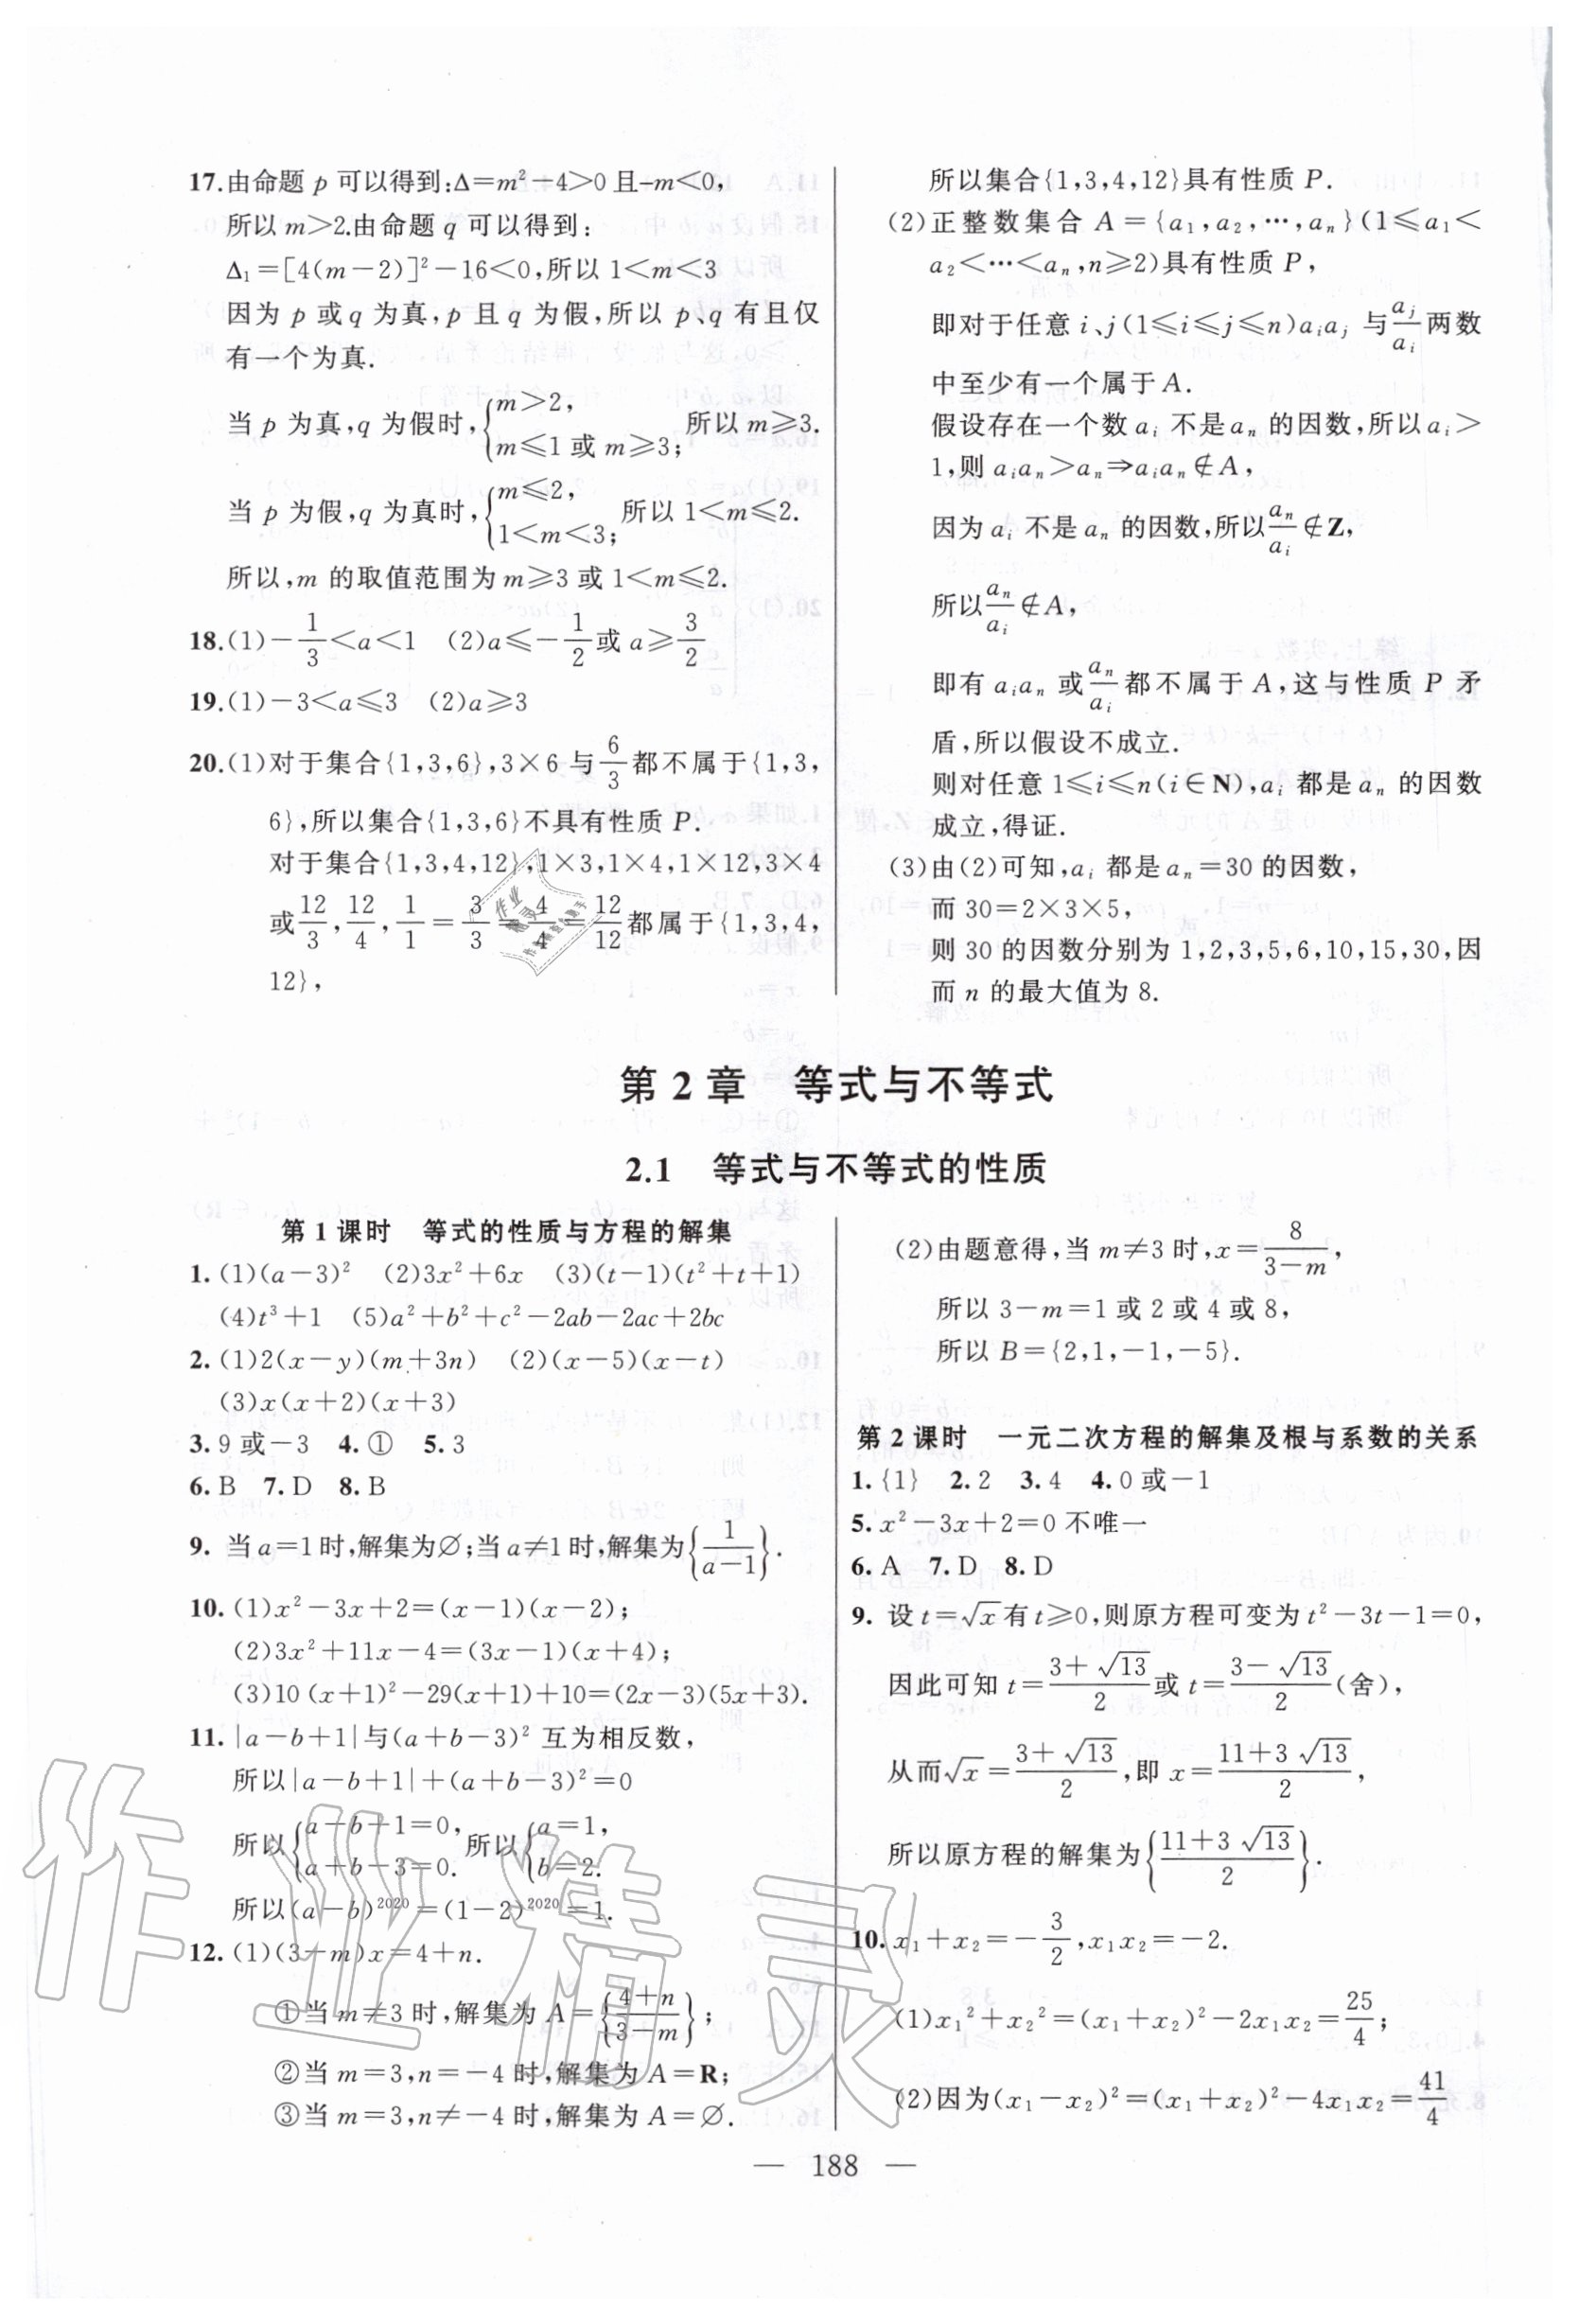 17.由命题 p 可以得到:Δ=m²-4>0且-m<0,
所以m>2.由命题 q 可以得到:
Δ₁=[4(m-2)]²-16<0,所以1<m<3
因为 p 或q 为真,p 且 q 为假,所以 p、q 有且仅
有一个为真.
当 p 为真,q 为假时,{m>2, m≤1 或 m≥3; 所以m≥3.
当 p 为假,q 为真时,{m≤2, 1<m<3; 所以1<m≤2.
所以,m 的取值范围为m≥3或1<m≤2.
18.(1)-1/3<a<1 (2)a≤-1/2或a≥3/2
19.(1)-3<a≤3 (2)a≥3
20.(1)对于集合{1,3,6},3×6与6/3都不属于{1,3,
6},所以集合{1,3,6}不具有性质P.
对于集合{1,3,4,12},1×3,1×4,1×12,3×4
或12/3,12/4,1/1=3/3=4/4=12/12都属于{1,3,4,
12},
所以集合{1,3,4,12}具有性质 P.
(2)正整数集合 A={a₁,a₂,…,aₙ}(1≤a₁<
a₂<…<aₙ,n≥2)具有性质P,
即对于任意i、j(1≤i≤j≤n)aᵢaⱼ 与aⱼ/aᵢ两数
中至少有一个属于A.
假设存在一个数aᵢ 不是aₙ 的因数,所以aᵢ>
1,则aᵢaₙ>aₙ⇒aᵢaₙ∉A,
因为aᵢ 不是aₙ 的因数,所以aₙ/aᵢ∉Z,
所以aₙ/aᵢ∉A,
即有aᵢaₙ 或aₙ/aᵢ都不属于A,这与性质 P 矛
盾,所以假设不成立.
则对任意1≤i≤n(i∈N),aᵢ 都是aₙ 的因数
成立,得证.
(3)由(2)可知,aᵢ 都是aₙ=30的因数,
而30=2×3×5,
则30的因数分别为1,2,3,5,6,10,15,30,因
而n 的最大值为8.
第2章 等式与不等式
2.1 等式与不等式的性质
第1课时 等式的性质与方程的解集
1.(1)(a-3)² (2)3x²+6x (3)(t-1)(t²+t+1)
(4)t³+1 (5)a²+b²+c²-2ab-2ac+2bc
2.(1)2(x-y)(m+3n) (2)(x-5)(x-t)
(3)x(x+2)(x+3)
3.9或-3 4.① 5.3
6.B 7.D 8.B
9. 当a=1时,解集为∅;当a≠1时,解集为{1/(a-1)}.
10.(1)x²-3x+2=(x-1)(x-2);
(2)3x²+11x-4=(3x-1)(x+4);
(3)10(x+1)²-29(x+1)+10=(2x-3)(5x+3).
11.|a-b+1|与(a+b-3)² 互为相反数,
所以|a-b+1|+(a+b-3)²=0
所以{a-b+1=0, a+b-3=0. 所以{a=1, b=2.
所以(a-b)²⁰²⁰=(1-2)²⁰²⁰=1.
12.(1)(3-m)x=4+n.
①当m≠3时,解集为A={(4+n)/(3-m)};
②当m=3,n=-4时,解集为A=R;
③当m=3,n≠-4时,解集为A=∅.
(2)由题意得,当m≠3时,x=8/(3-m),
所以3-m=1或2或4或8,
所以B={2,1,-1,-5}.
第2课时 一元二次方程的解集及根与系数的关系
1.{1} 2.2 3.4 4.0或-1
5.x²-3x+2=0 不唯一
6.A 7.D 8.D
9. 设t=√x有t≥0,则原方程可变为t²-3t-1=0,
因此可知t=(3+√13)/2或t=(3-√13)/2(舍),
从而√x=(3+√13)/2,即x=(11+3√13)/2,
所以原方程的解集为{(11+3√13)/2}.
10.x₁+x₂=-3/2,x₁x₂=-2.
(1)x₁²+x₂²=(x₁+x₂)²-2x₁x₂=25/4;
(2)因为(x₁-x₂)²=(x₁+x₂)²-4x₁x₂=41/4
— 188 —
作业精灵